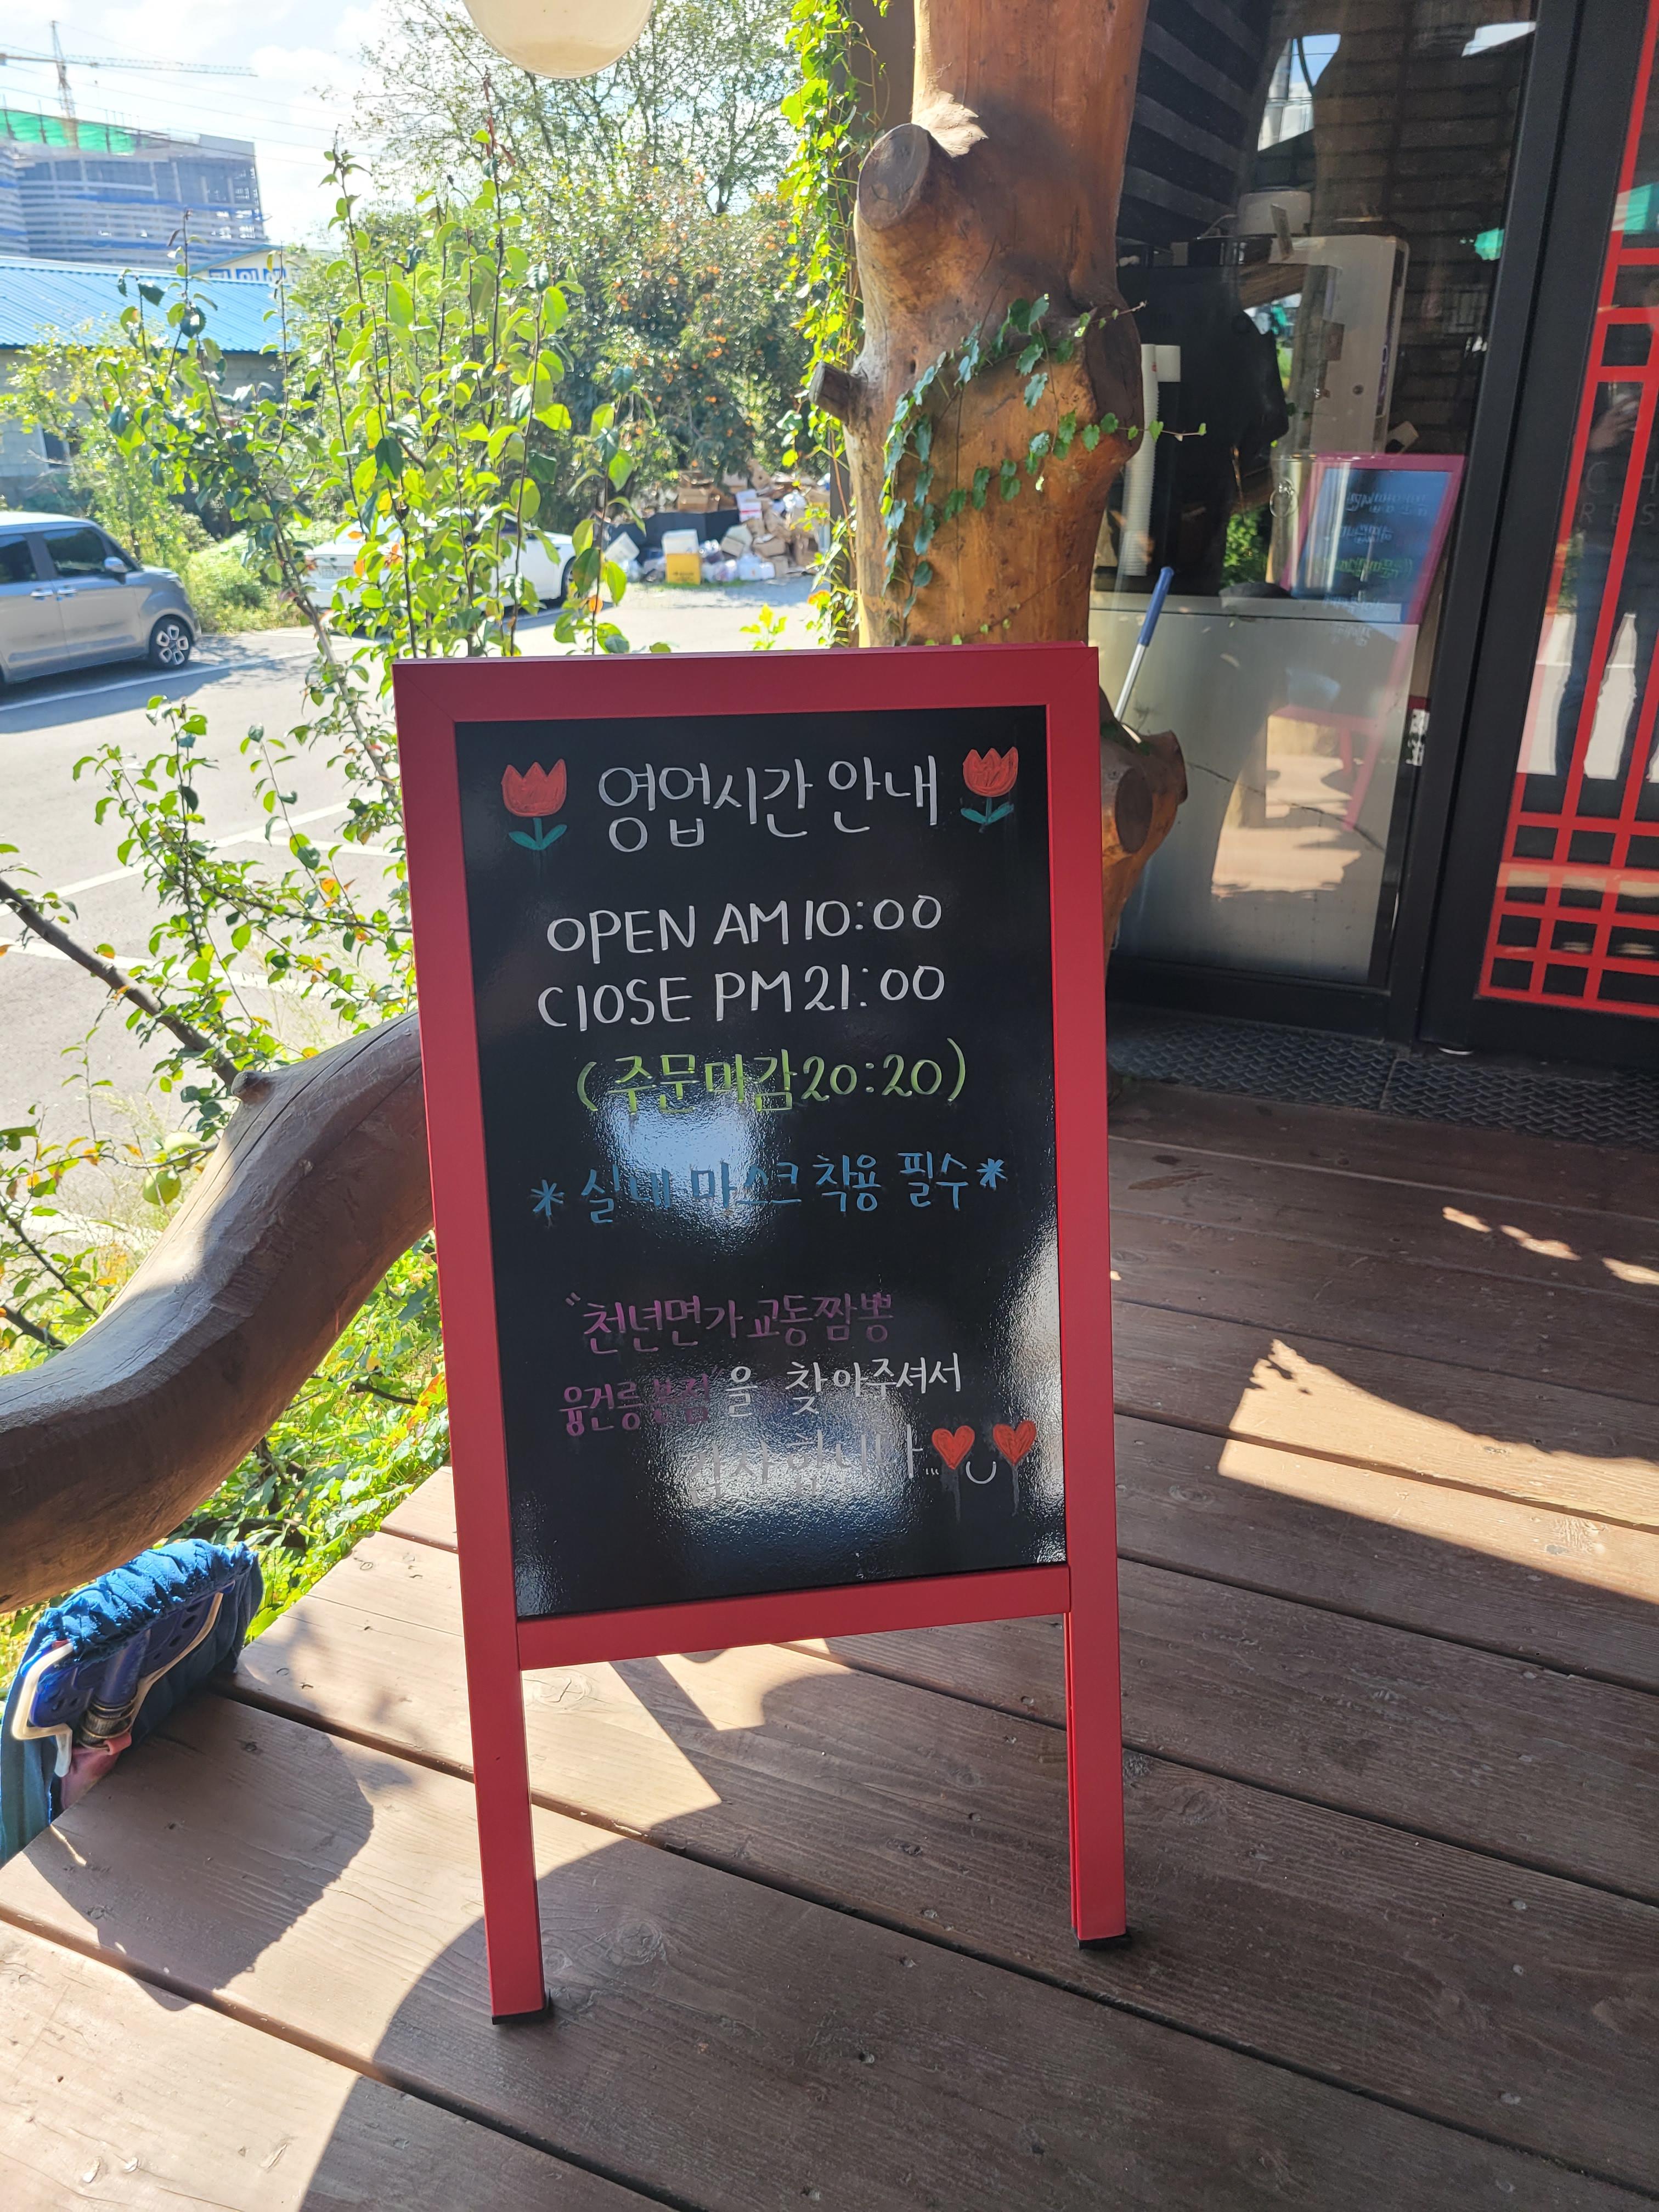 영업시간 안내
OPEN AM 10:00
ClOSE PM 21:00
(주문마감 20:20)
*실내 마스크 착용 필수*
"천년면가 교동짬뽕
융건릉본점"을 찾아주셔서
감사합니다...